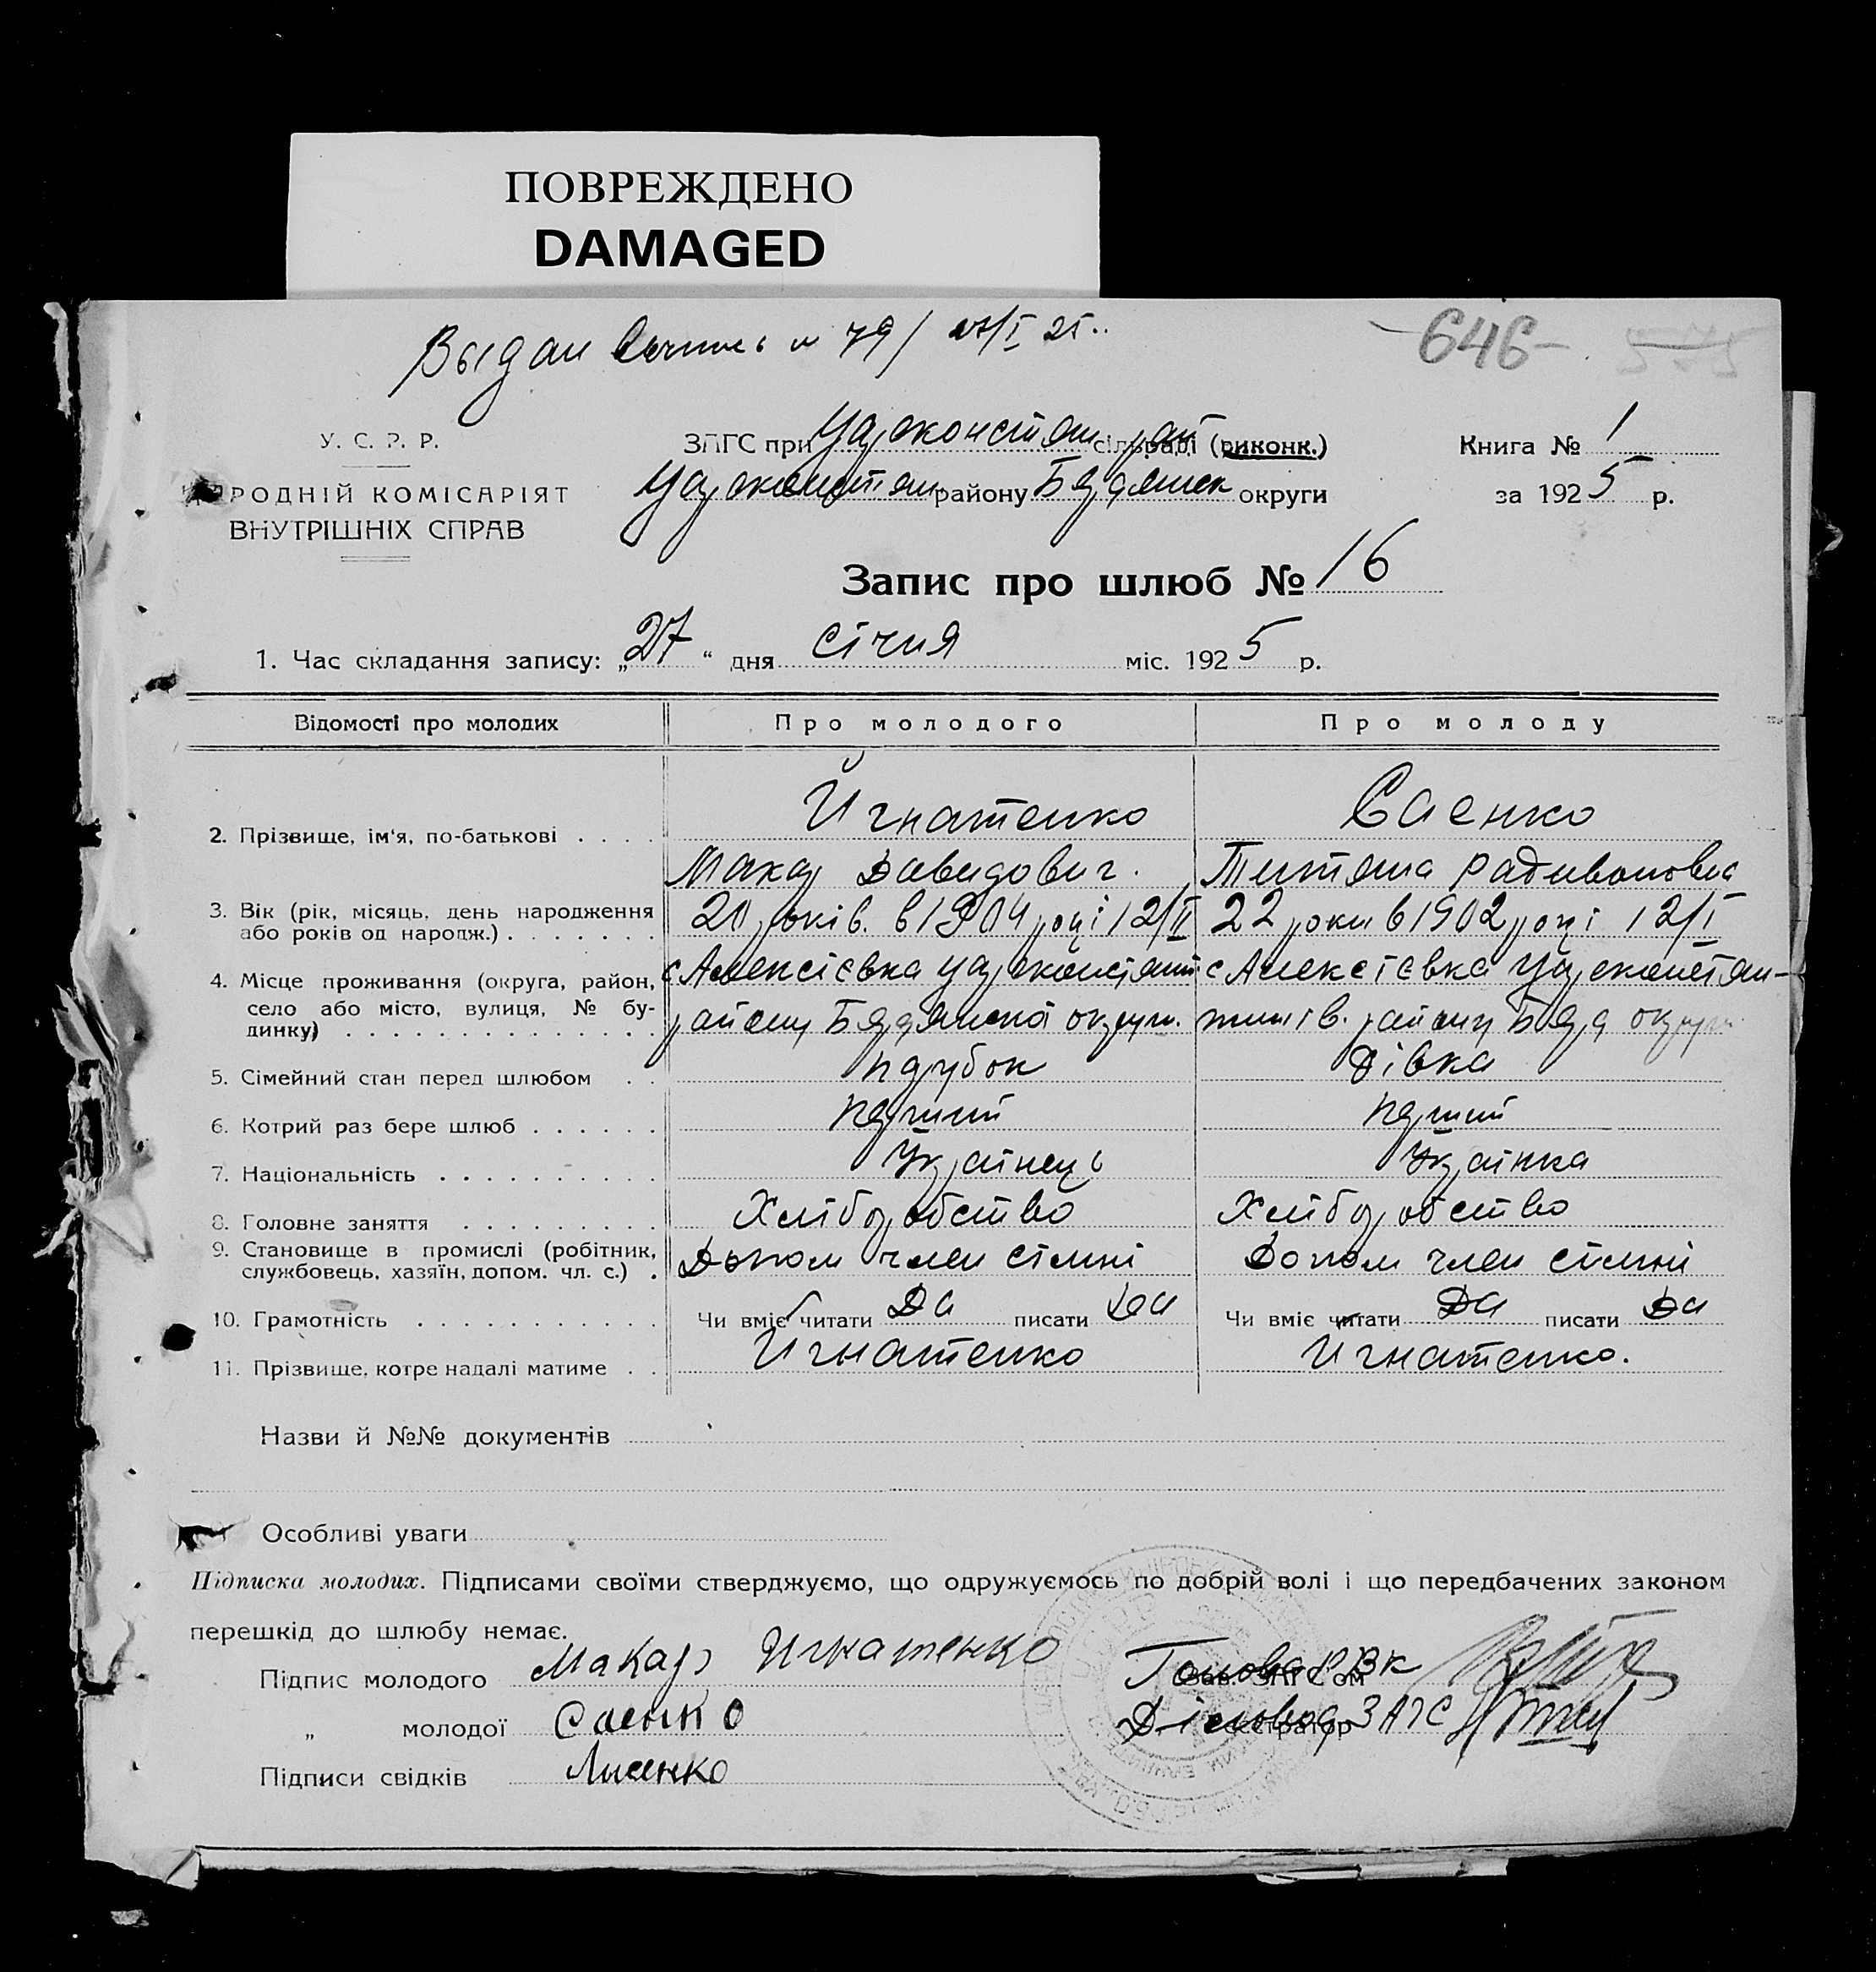 ПОВРЕЖДЕНО
DAMAGED
Выдан № 79/ 27/I 25..
-646-
У. С. Р. Р.
ЗАГС при Цареконстян. рай сільраді (виконк.)
Книга № 1
НАРОДНІЙ КОМІСАРІЯТ
Цареконстян району Бердянск округи
за 1925 р.
ВНУТРІШНІХ СПРАВ
Запис про шлюб № 16
1. Час складання запису: „27“ дня січня міс. 1925 р.
Відомості про молодих Про молодого Про молоду
2. Прізвище, ім‘я, по-батькові . . . . Йгнатенко Саенко
Макар Давидович. Титяна Радивоновна
3. Вік (рік, місяць, день народження 20 років. в 1904 році 12/II 22 роки в 1902 році 12/I
або років од народж.) . . . . . . .
4. Місце проживання (округа, район, с Алексієвка Цареконстянт с Алексієвка Цареконстян-
село або місто, вулиця, № бу- району Бердянскоі округи. тинів. району Берд округи
динку) . . . . . . . . . . . . .
5. Сімейний стан перед шлюбом . . парубок Дівка
6. Котрий раз бере шлюб . . . . . . перший перший
7. Національність . . . . . . . . . . Українець Українка
8. Головне заняття . . . . . . . . . Хліборобство Хліборобство
9. Становище в промислі (робітник, Допом член сімні Допом член сімні
службовець, хазяїн, допом. чл. с.) .
10. Грамотність . . . . . . . . . . . Чи вміє читати Да писати Да Чи вміє читати Да писати Да
11. Прізвище, котре надалі матиме . . Игнатенко Игнатенко.
Назви й №№ документів
Особливі уваги
Підписка молодих. Підписами своїми стверджуємо, що одружуємось по добрій волі і що передбачених законом
перешкід до шлюбу немає.
Підпис молодого Макар Игнатенко Голова РВК
Зав. ЗАГС‘ом
„ молодої Саенко Діловод ЗАГС
Реєстратор
Підписи свідків Лисенко